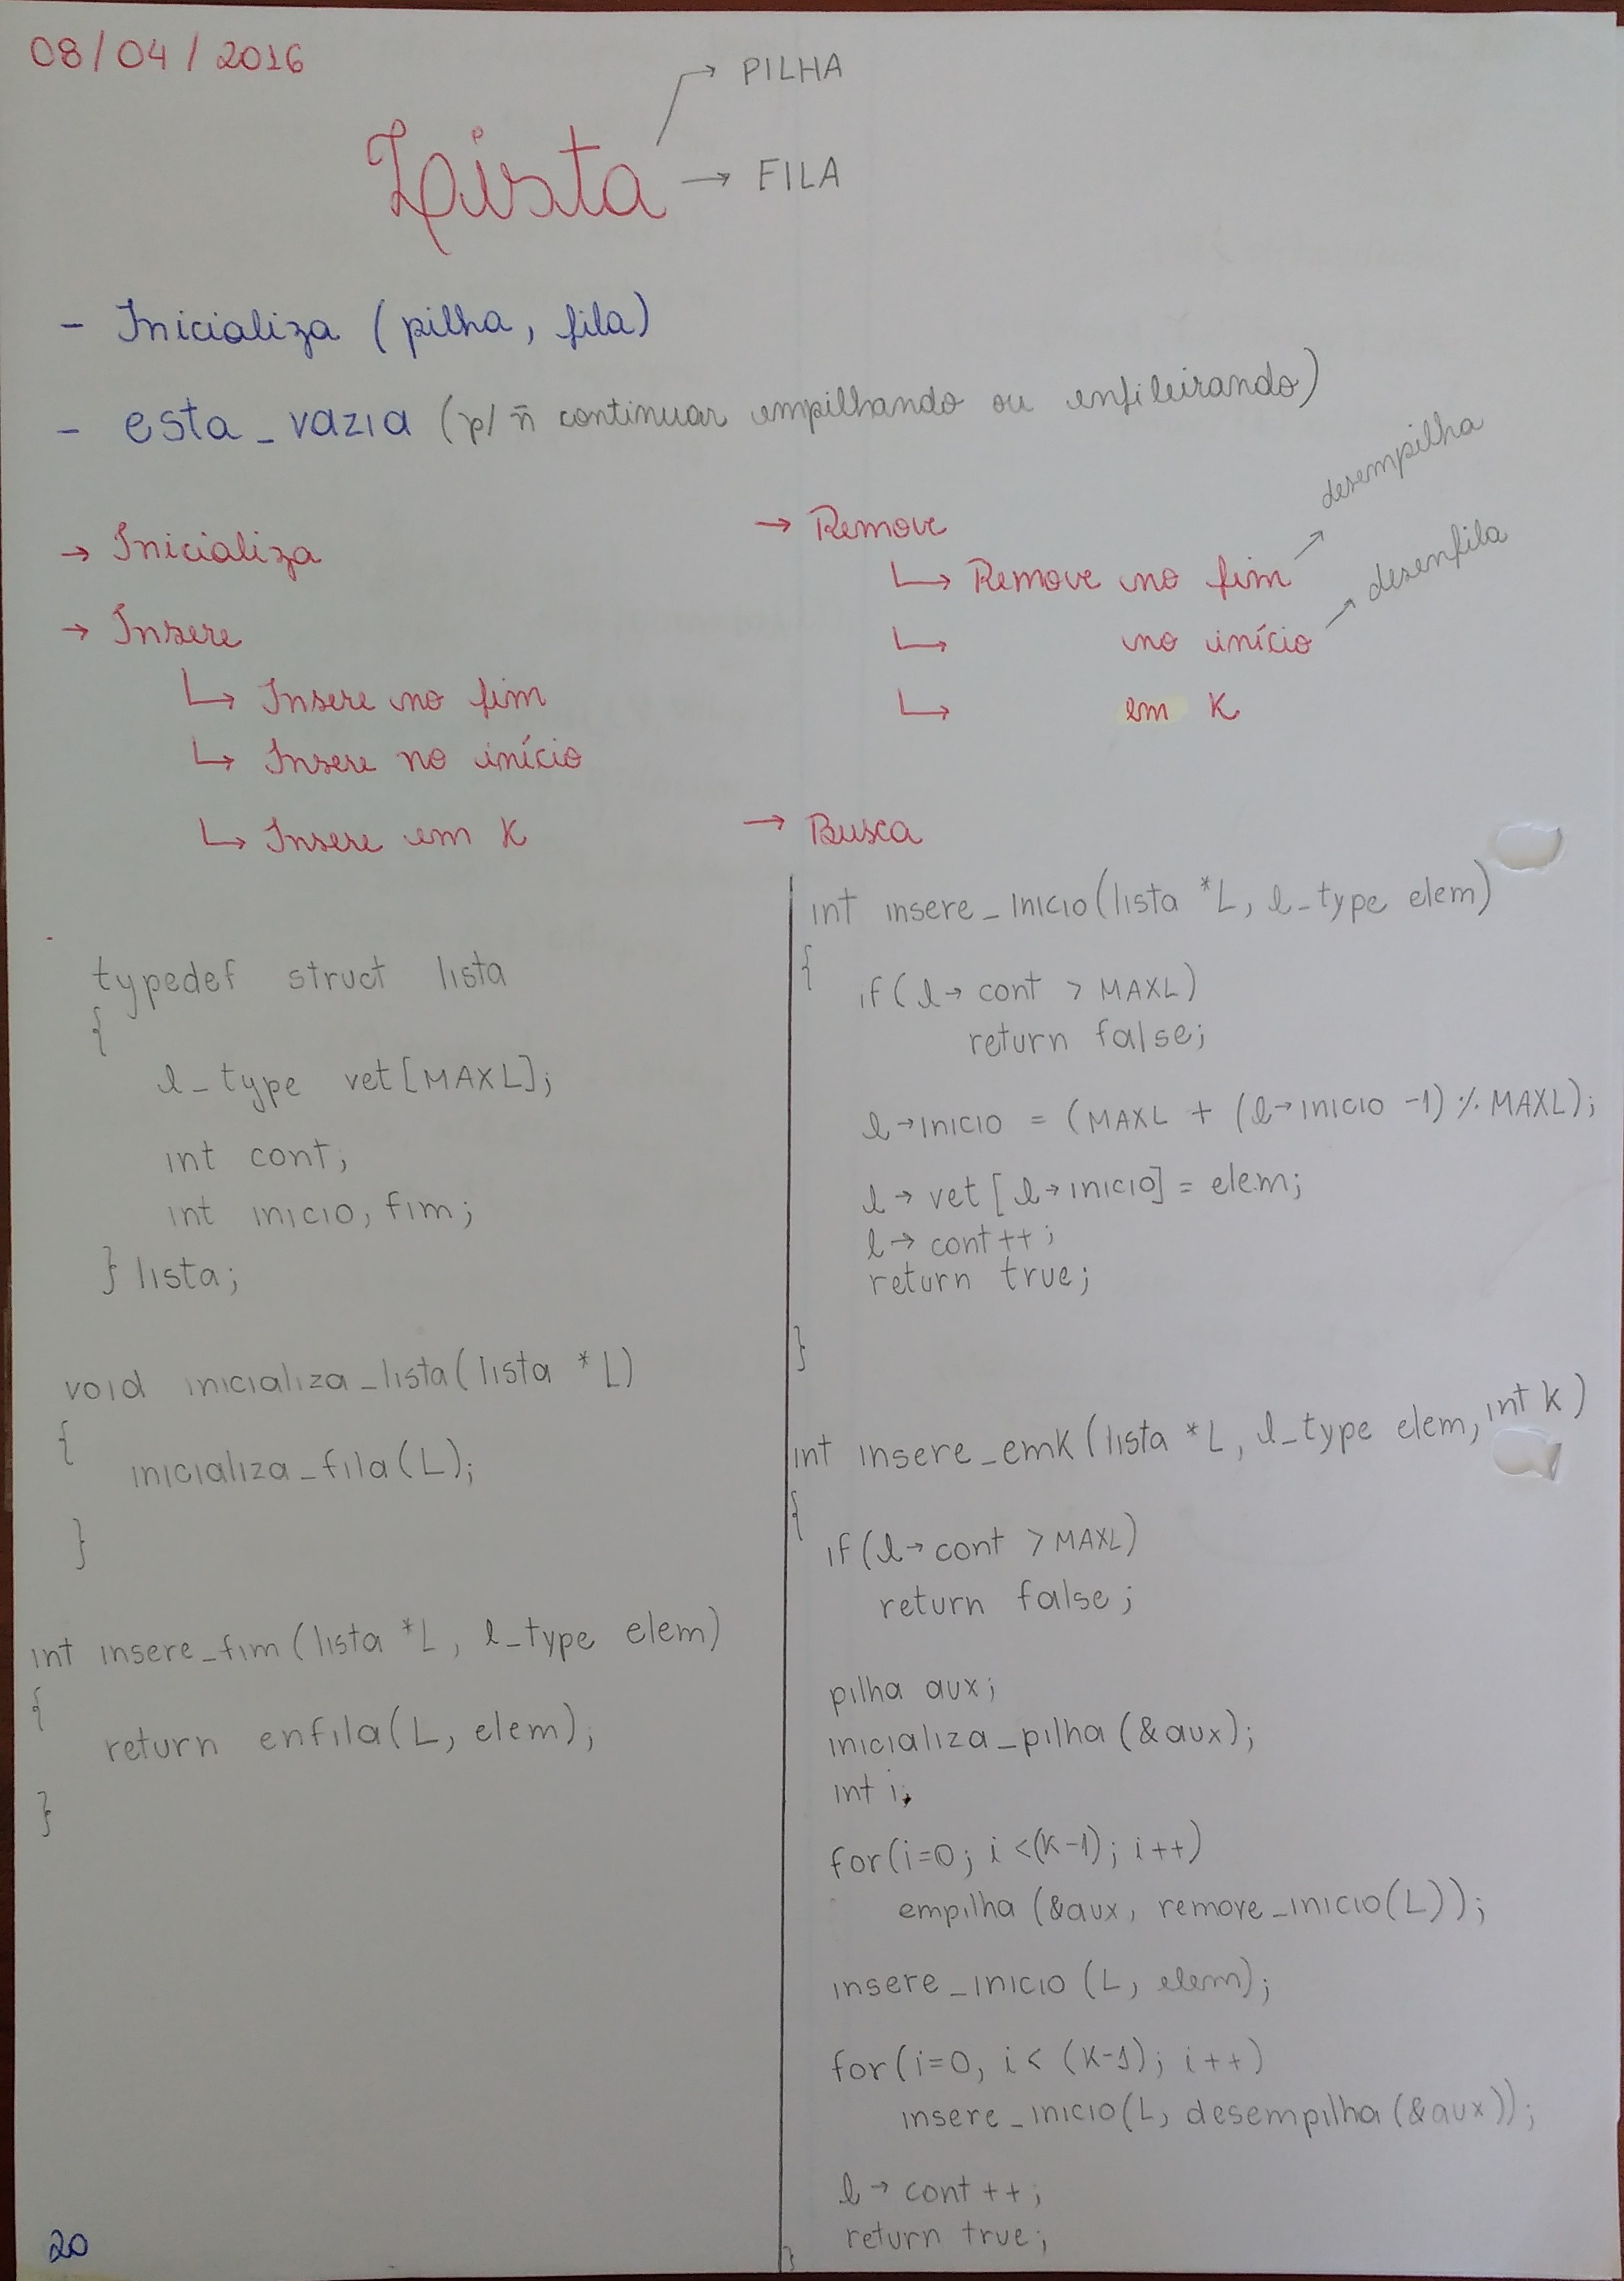 08/04/2016
Lista → PILHA
→ FILA
- Inicializa (pilha, fila)
- esta_vazia (p/ ñ continuar empilhando ou enfileirando)
→ Inicializa
→ Insere
↳ Insere no fim
↳ Insere no início
↳ Insere em K
→ Remove
↳ Remove no fim → desempilha
↳ no início → desenfila
↳ em K
→ Busca
typedef struct lista
{
l_type vet[MAXL];
int cont;
int inicio, fim;
} lista;
void inicializa_lista(lista *L)
{
inicializa_fila(L);
}
int insere_fim(lista *L, l_type elem)
{
return enfila(L, elem);
}
20
int insere_inicio(lista *L, l_type elem)
{
if(l→cont > MAXL)
return false;
l→inicio = (MAXL + (l→inicio -1) % MAXL);
l→vet[l→inicio] = elem;
l→cont++;
return true;
}
int insere_emK(lista *L, l_type elem, int k)
{
if(l→cont > MAXL)
return false;
pilha aux;
inicializa_pilha(&aux);
int i;
for(i=0; i<(K-1); i++)
empilha(&aux, remove_inicio(L));
insere_inicio(L, elem);
for(i=0, i<(K-1); i++)
insere_inicio(L, desempilha(&aux));
l→cont++;
return true;
}